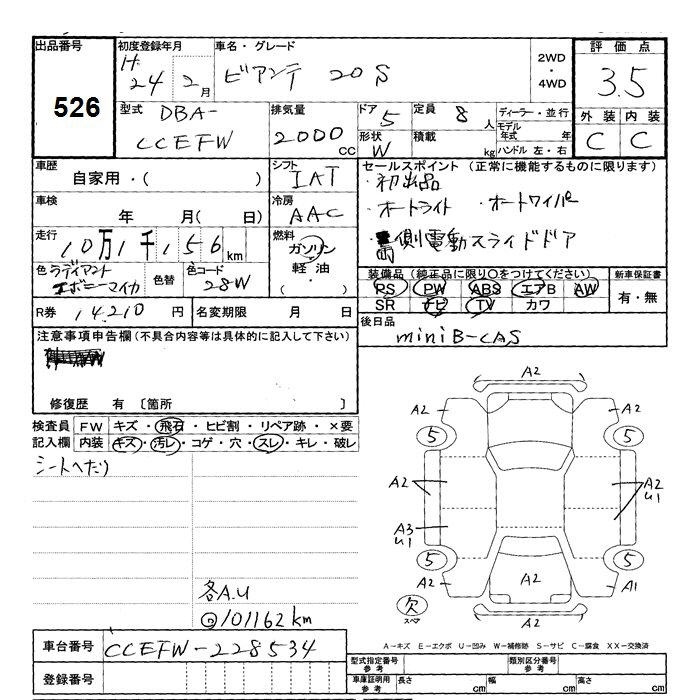 出品番号 初度登録年月 車名・グレード 評価点
526
H24年2月 ビアンテ 20S 2WD・4WD 3.5
型式 DBA-CCEFW
排気量 2000cc
ドア 5 定員 8人 ディーラー・並行
形状 W 積載 kg モデル年式 年 ハンドル 左・右
外装 内装
C C
車歴 自家用・( )
シフト IAT
車検 年 月( 日)
冷房 AAC
走行 10万1千156km
燃料 ガソリン 軽油・
色 ラディアントエボニーマイカ 色替 色コード 28W
R券 14,210円 名変期限 月 日
セールスポイント (正常に機能するものに限ります)
・初出品
・オートライト ・オートワイパー
側電動スライドドア
装備品(純正品に限り○をつけてください) 新車保証書
PS PW ABS エアB AW 有・無
SR ナビ TV カワ
後日品
miniB-CAS
注意事項申告欄(不具合内容等は具体的に記入して下さい)
修復歴 有 〔箇所 〕
検査員 FW キズ・飛石・ヒビ割・リペア跡・×要
記入欄 内装 キズ・汚レ・コゲ・穴・スレ・キレ・破レ
シートへたり
各A.U
101162km
A2
A2 A2
5 5
A2 A2
U1
A3
U1
5 5
A2 A2 A1
欠 スペア
A2
A-キズ E-エクボ U-凹み W-補修跡 S-サビ C-腐食 XX-交換済
車台番号 CCEFW-228534
登録番号
型式指定番号 参考 類別区分番号 参考
車庫証明用 参考 長さ cm 幅 cm 高さ cm